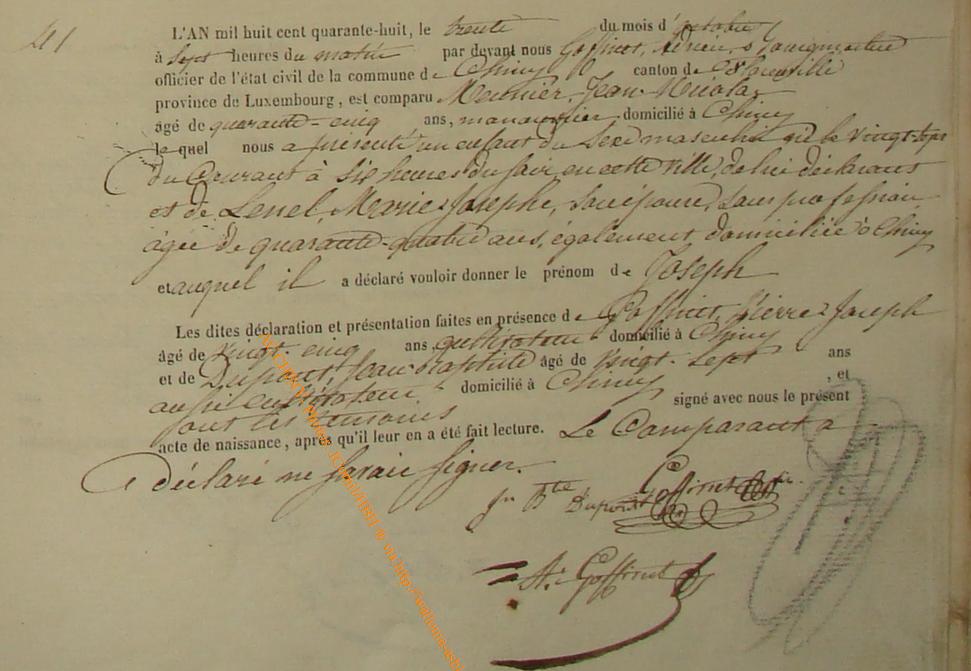 41
L'AN mil huit cent quarante-huit, le trente du mois d'octobre
à sept heures du matin par devant nous Goffinet,
officier de l'état civil de la commune de Chiny canton de Florenville
province de Luxembourg, est comparu Meunier, Jean-Nicolas
âgé de quarante-cinq ans, manouvrier, domicilié à Chiny
le quel nous a présenté un enfant du sexe masculin né le vingt-sept
du Courant à six heures du soir en cette ville, de lui déclarant
et de Lenel, Marie-Josephe, son épouse, sans profession,
âgée de quarante-quatre ans, également domiciliée à Chiny
et auquel il a déclaré vouloir donner le prénom de Joseph
Les dites déclaration et présentation faites en présence de Goffinet, Pierre-Joseph
âgé de vingt-cinq ans, cultivateur domicilié à Chiny
et de Dupont, Jean-Baptiste âgé de vingt-sept ans
aussi cultivateur, domicilié à Chiny, et
ont les témoins signé avec nous le présent
acte de naissance, après qu'il leur en a été fait lecture. Le Comparant a
déclaré ne savoir signer.
Jn Bte Dupont Goffinet
Goffinet